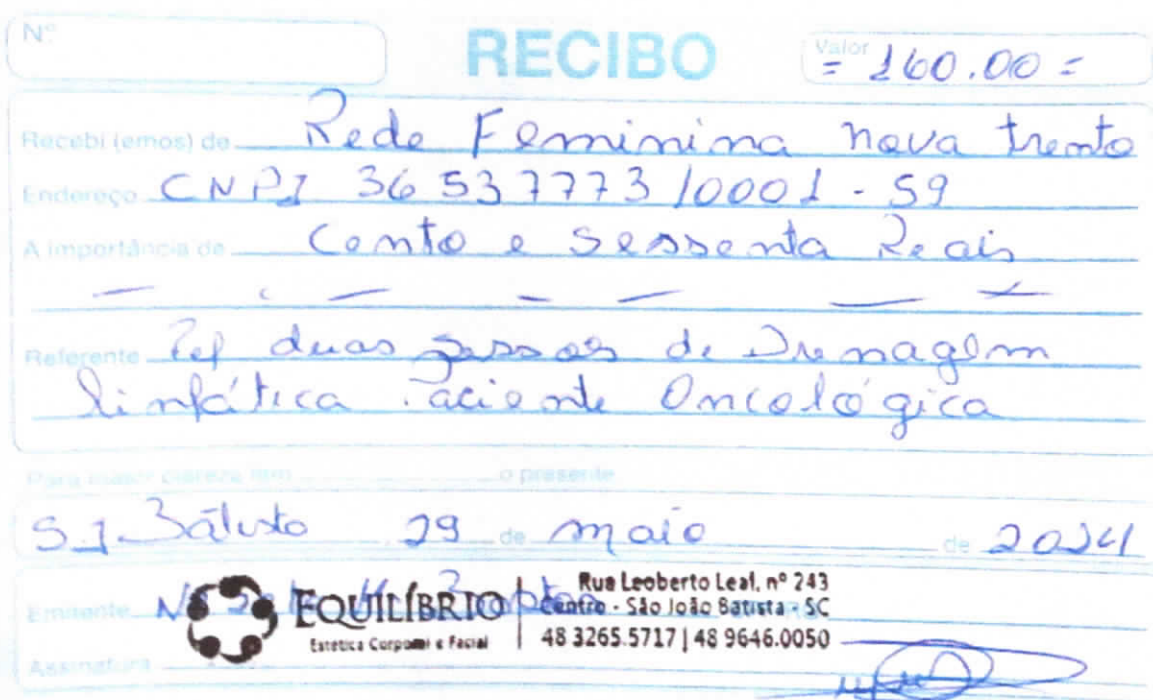 Nº
RECIBO
Valor = 160.00 =
Recebi (emos) de Rede Feminina nova trento
Endereço CNPJ 36537773/0001-59
A importância de Cento e sessenta Reais
Referente Ref duas sessoes de Drenagem
linfática Paciente Oncológica
Para maior clareza firm o presente
S.J. Batista 29 de maio de 2024
Emitente
EQUILÍBRIO
Estética Corporal e Facial
Rua Leoberto Leal, nº 243
Centro - São João Batista - SC
48 3265.5717 | 48 9646.0050
Assinatura